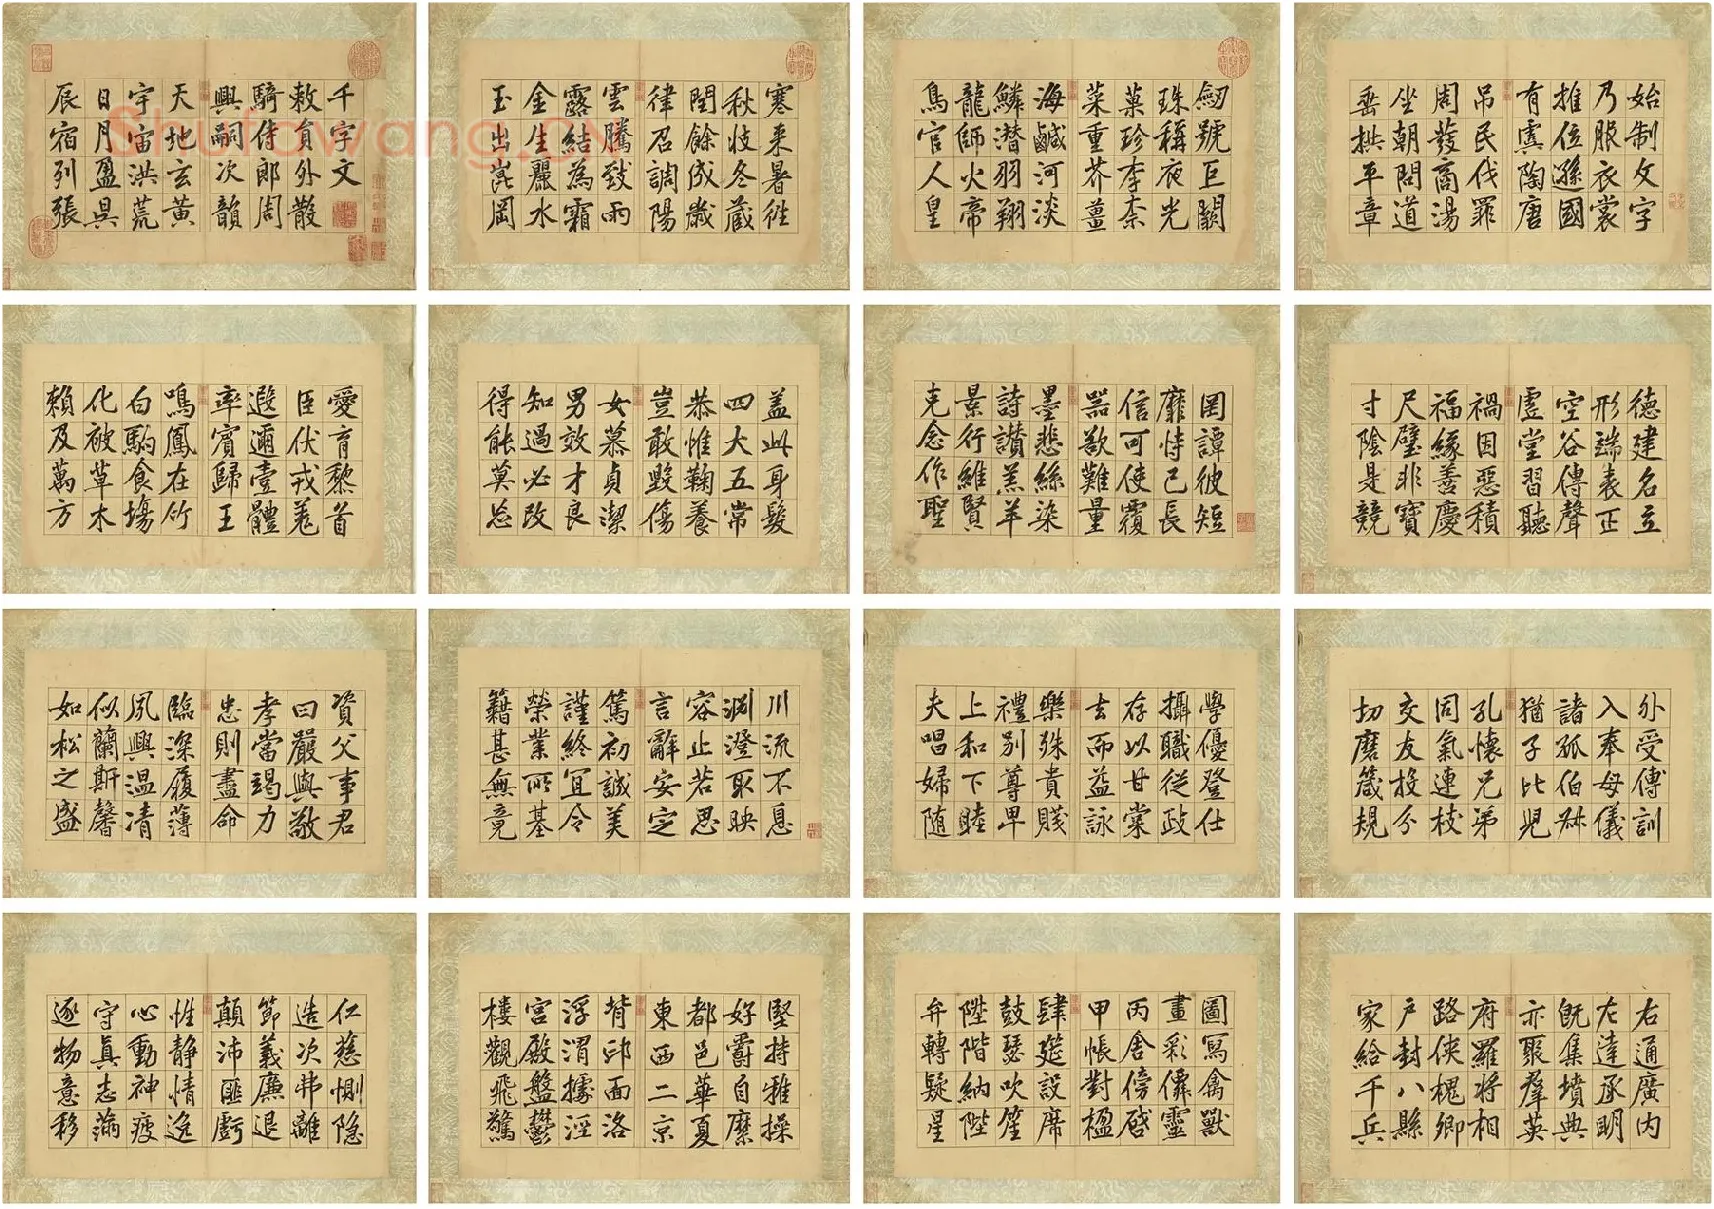 Shufawang.CN
千字文
敕員外散
騎侍郎周
興嗣次韻
天地玄黃
宇宙洪荒
日月盈昃
辰宿列張
寒来暑往
秋收冬藏
閏餘成歲
律召調陽
雲騰致雨
露結為霜
金生麗水
玉出崑岡
劒號巨闕
珠稱夜光
菓珍李柰
菜重芥薑
海鹹河淡
鱗潛羽翔
龍師火帝
鳥官人皇
始制文字
乃服衣裳
推位遜國
有虞陶唐
吊民伐罪
周發商湯
坐朝問道
垂拱平章
愛育黎首
臣伏戎羌
遐邇壹體
率賓歸王
鳴鳳在竹
白駒食場
化被草木
賴及萬方
蓋此身髮
四大五常
恭惟鞠養
豈敢毀傷
女慕貞潔
男效才良
知過必改
得能莫忘
罔譚彼短
靡恃己長
信可使覆
器欲難量
墨悲絲染
詩讚羔羊
景行維賢
克念作聖
德建名立
形端表正
空谷傳聲
虛堂習聽
禍因惡積
福緣善慶
尺璧非寶
寸陰是競
資父事君
曰嚴與敬
孝當竭力
忠則盡命
臨深履薄
夙興溫凊
似蘭斯馨
如松之盛
川流不息
淵澄取映
容止若思
言辭安定
篤初誠美
謹終宜令
榮業所基
籍甚無竟
學優登仕
攝職從政
存以甘棠
去而益詠
樂殊貴賤
禮別尊卑
上和下睦
夫唱婦隨
外受傅訓
入奉母儀
諸孤伯叔
猶子比兒
孔懷兄弟
同氣連枝
交友投分
切磨箴規
仁慈惻隱
造次弗離
節義廉退
顛沛匪虧
性靜情逸
心動神疲
守真志滿
逐物意移
堅持雅操
好爵自縻
都邑華夏
東西二京
背邙面洛
浮渭據涇
宮殿盤鬱
樓觀飛驚
圖寫禽獸
畫彩僊靈
丙舍傍啓
甲帳對楹
肆筵設席
鼓瑟吹笙
陞階納陛
弁轉疑星
右通廣內
左達承明
既集墳典
亦聚羣英
府羅將相
路俠槐卿
戶封八縣
家給千兵